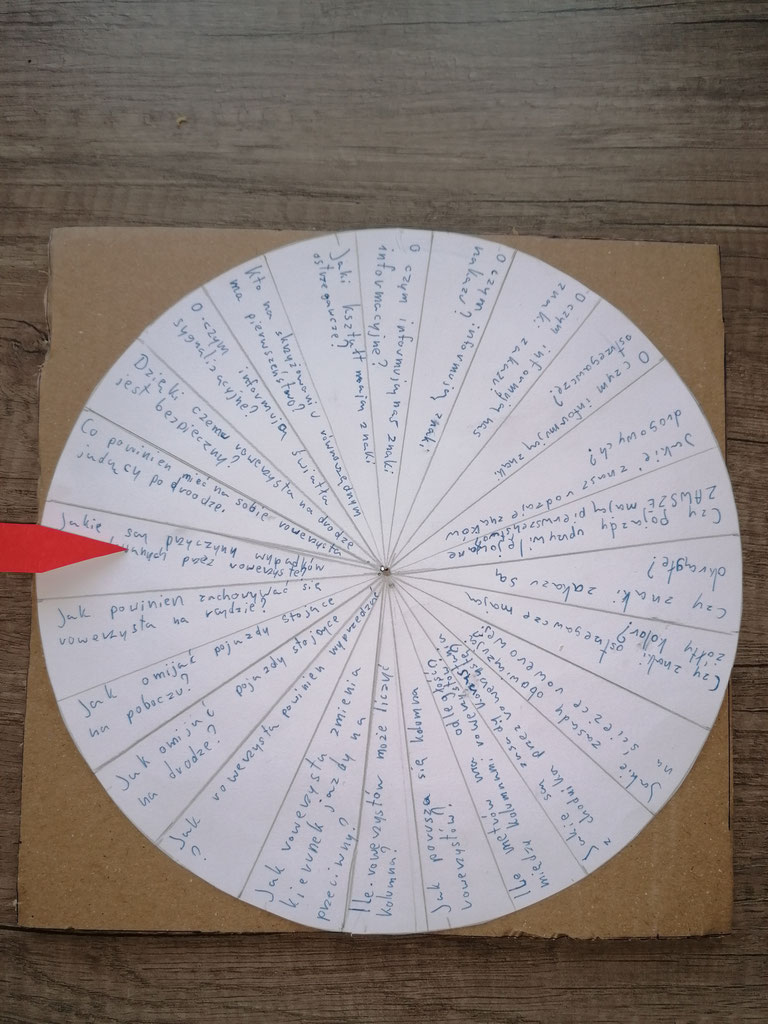 O czym informują nas znaki
informacyjne?
O czym informują znaki
nakazu?
O czym informują nas
znaki zakazu?
O czym informują znaki
ostrzegawcze?
Jakie znasz rodzaje znaków
drogowych?
Czy pojazdy uprzywilejowane
ZAWSZE mają pierwszeństwo?
Czy znaki zakazu są
okrągłe?
Czy znaki ostrzegawcze mają
żółty kolor?
Jakie zasady obowiązują
na ścieżce rowerowej?
Jakie są zasady korzystania
z chodnika przez rowerzystę?
Ile metrów ma odległość
między kolumnami rowerzystów?
Jak porusza się kolumna
rowerzystów?
Ile rowerzystów może liczyć
kolumna?
Jak rowerzysta zmienia
kierunek jazdy na
przeciwny?
Jak rowerzysta powinien wyprzedzać
?
Jak omijać pojazdy stojące
na drodze?
Jak omijać pojazdy stojące
na poboczu?
Jak powinien zachowywać się
rowerzysta na rondzie?
Jakie są przyczyny wypadków
przez rowerzystę?
Co powinien mieć na sobie rowerzysta
jadący po drodze.
Dzięki czemu rowerzysta na drodze
jest bezpieczny?
O czym informują światła
sygnalizacyjne?
Kto na skrzyżowaniu równorzędnym
ma pierwszeństwo?
Jaki kształt mają znaki
ostrzegawcze?